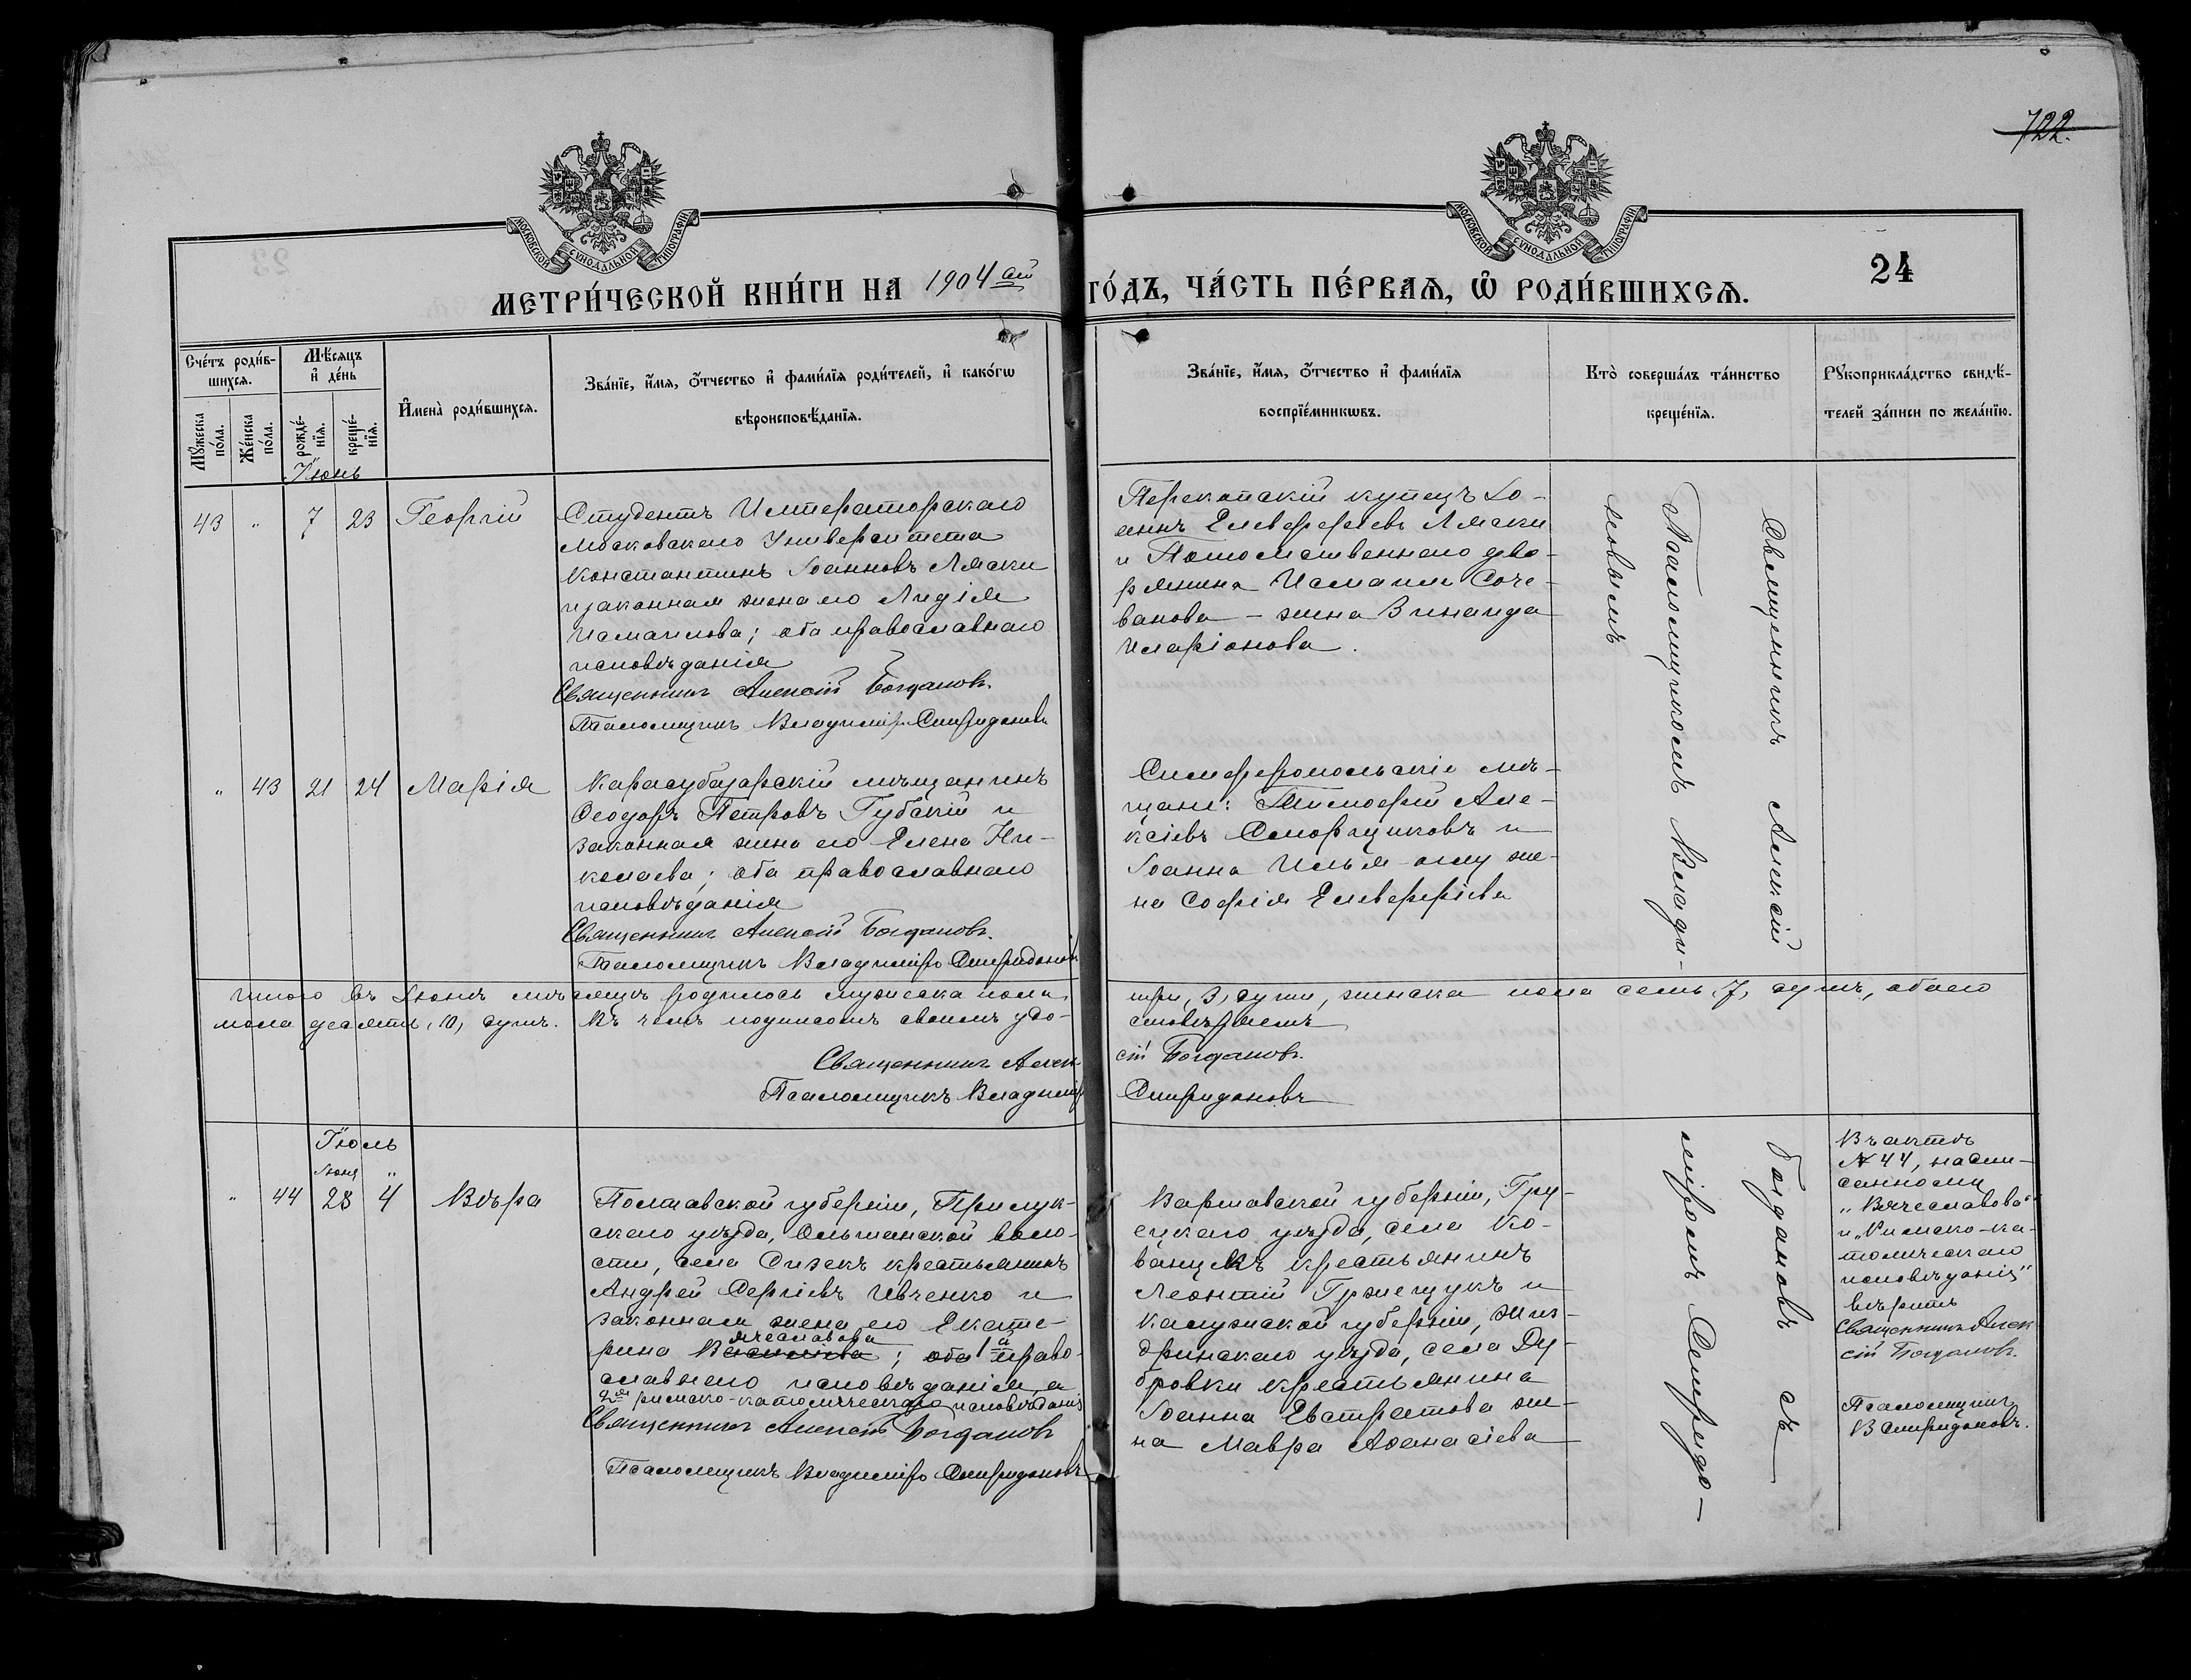 722.
МОСКОВСКОЙ СѴНОДАЛЬНОЙ ТИПОГРАФІИ
МОСКОВСКОЙ СѴНОДАЛЬНОЙ ТИПОГРАФІИ
24
МЕТРИ́ЧЕСКОЙ КНИ́ГИ НА 1904 ый ГО́ДЪ, ЧА́СТЬ ПЕ́РВАѦ, Ѡ҆ РОДИ́ВШИХСѦ.
Сче́тъ роди́в-
шихсѧ.
Мꙋ́жеска по́ла.
Же́нска по́ла.
Мѣ́сѧцъ
и҆ де́нь
рожде́-
нїѧ.
креще́-
нїѧ.
И҆мена̀ роди́вшихсѧ.
Зва́нїе, и҆́мѧ, ѻ҆́тчество и҆ фами́лїѧ роди́телей, и҆ како́гѡ
вѣроисповѣ́данїѧ.
Зва́нїе, и҆́мѧ, ѻ҆́тчество и҆ фами́лїѧ
воспрїе́мникѡвъ.
Кто̀ соверша́лъ та́инство
креще́нїѧ.
Рꙋкоприкла́дство свидѣ́-
телей за́писи по жела́нїю.
Іюнь
43 " 7 23 Георгій
Студентъ Императорскаго
Московскаго Университета
Константинъ Іоанновъ Ляски
и законная жена его Лидія
Исмаилова; оба православнаго
исповѣданія
Священникъ Алексій Богдановъ.
Псаломщикъ Владиміръ Спиридоновъ
Перекопскій купецъ Іо-
аннъ Елевферіевъ Ляски
и Потомственнаго дво-
рянина Исмаила Соче-
ванова - жена Зинаида
Иларіонова.
Священникъ Алексій
Псаломщикомъ Влади-
новымъ
" 43 21 24 Марія
Карасубазарскій мѣщанинъ
Ѳеодоръ Петровъ Губскій и
законная жена его Елена Ни-
колаева; оба православнаго
исповѣданія
Священникъ Алексій Богдановъ.
Псаломщикъ Владиміръ Спиридоновъ
Симферопольскіе мѣ-
щане: Тимоѳей Але-
ксіевъ Сморщковъ и
Іоанна же-
на Софія Елевферіева
Итого въ Іюнѣ мѣсяцѣ родилось мужеска пола три, 3, души, женска пола семь, 7, душъ, обоего
пола десять, 10, душъ. Въ чемъ подписомъ своимъ удо-стовѣряемъ
Священникъ Алексій Богдановъ.
Псаломщикъ Владиміръ Спиридоновъ
Іюль
Іюня "
" 44 28 4 Вѣра
Полтавской губерніи, Прилук-
скаго уѣзда, Ольшанской воло-
сти, села Сизекъ крестьянинъ
Андрей Сергіевъ Ивченко и
законная жена его Екате-
рина Вячеславова; оба 1й право-
славнаго исповѣданія, а
2я римско-католическаго исповѣданія
Священникъ Алексій Богдановъ
Псаломщикъ Владиміръ Спиридоновъ
Варшавской губерніи, Гру-
ецкаго уѣзда, села Ко-
ванцекъ крестьянинъ
Леонтій Гржещукъ и
Калужской губерніи, Жиз-
дринскаго уѣзда, села Ду-
бровки крестьянина
Іоанна Евстратова же-
на Мавра Аѳанасіева
Богдановъ съ
міромъ Спиридо-
Въ актѣ
№ 44, написанному
"Вячеславова"
и "Римско-ка-
толическаго
исповѣданія"
вѣрить
Священникъ Алек
сій Богдановъ.
Псаломщикъ
В Спиридоновъ.